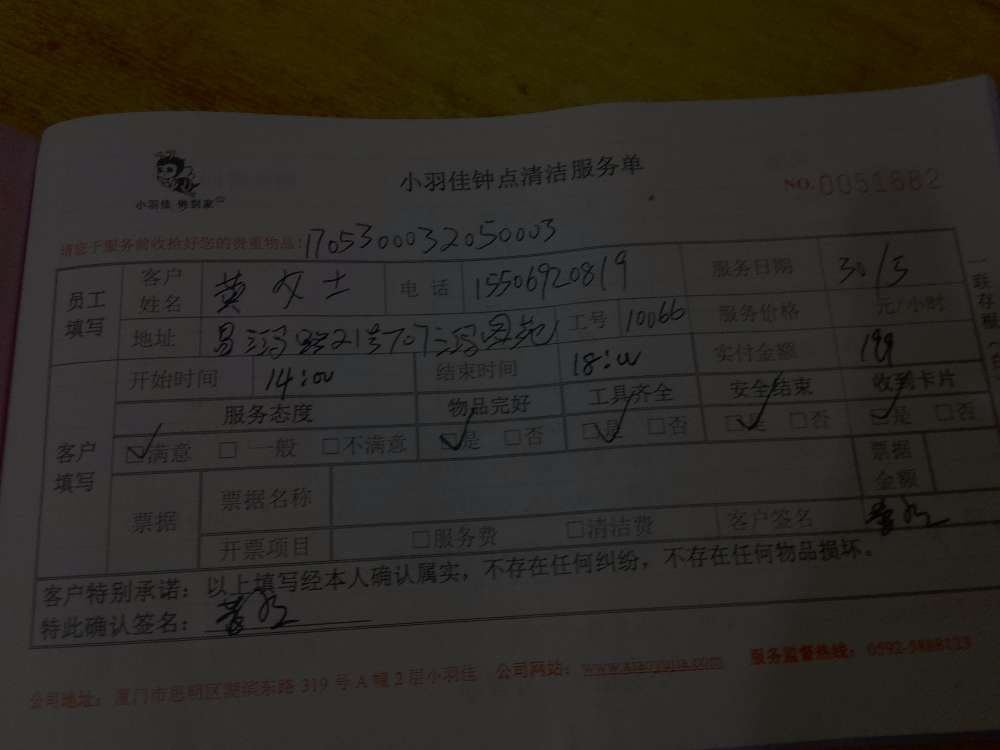 小羽佳钟点清洁服务单
NO. 0051682
小羽佳
请您于服务前收捡好您的贵重物品! 170530003205 0003
员工填写 客户姓名 黄女士 电话 15506920819 服务日期 30/5
地址 21号707 工号 10066 服务价格 元/小时
客户填写 开始时间 14:00 结束时间 18:00 实付金额 199
服务态度 物品完好 工具齐全 安全结束 收到卡片
☑满意 □一般 □不满意 ☑是 □否 ☑是 □否 ☑是 □否 ☑是 □否
票据 票据名称 票据金额
开票项目 □服务费 □清洁费 客户签名
客户特别承诺:以上填写经本人确认属实,不存在任何纠纷,不存在任何物品损坏。
特此确认签名:
公司地址:厦门市思明区湖滨东路319号A幢2层小羽佳 公司网站:www.xiaoyujia.com 服务监督热线:0592-5888123